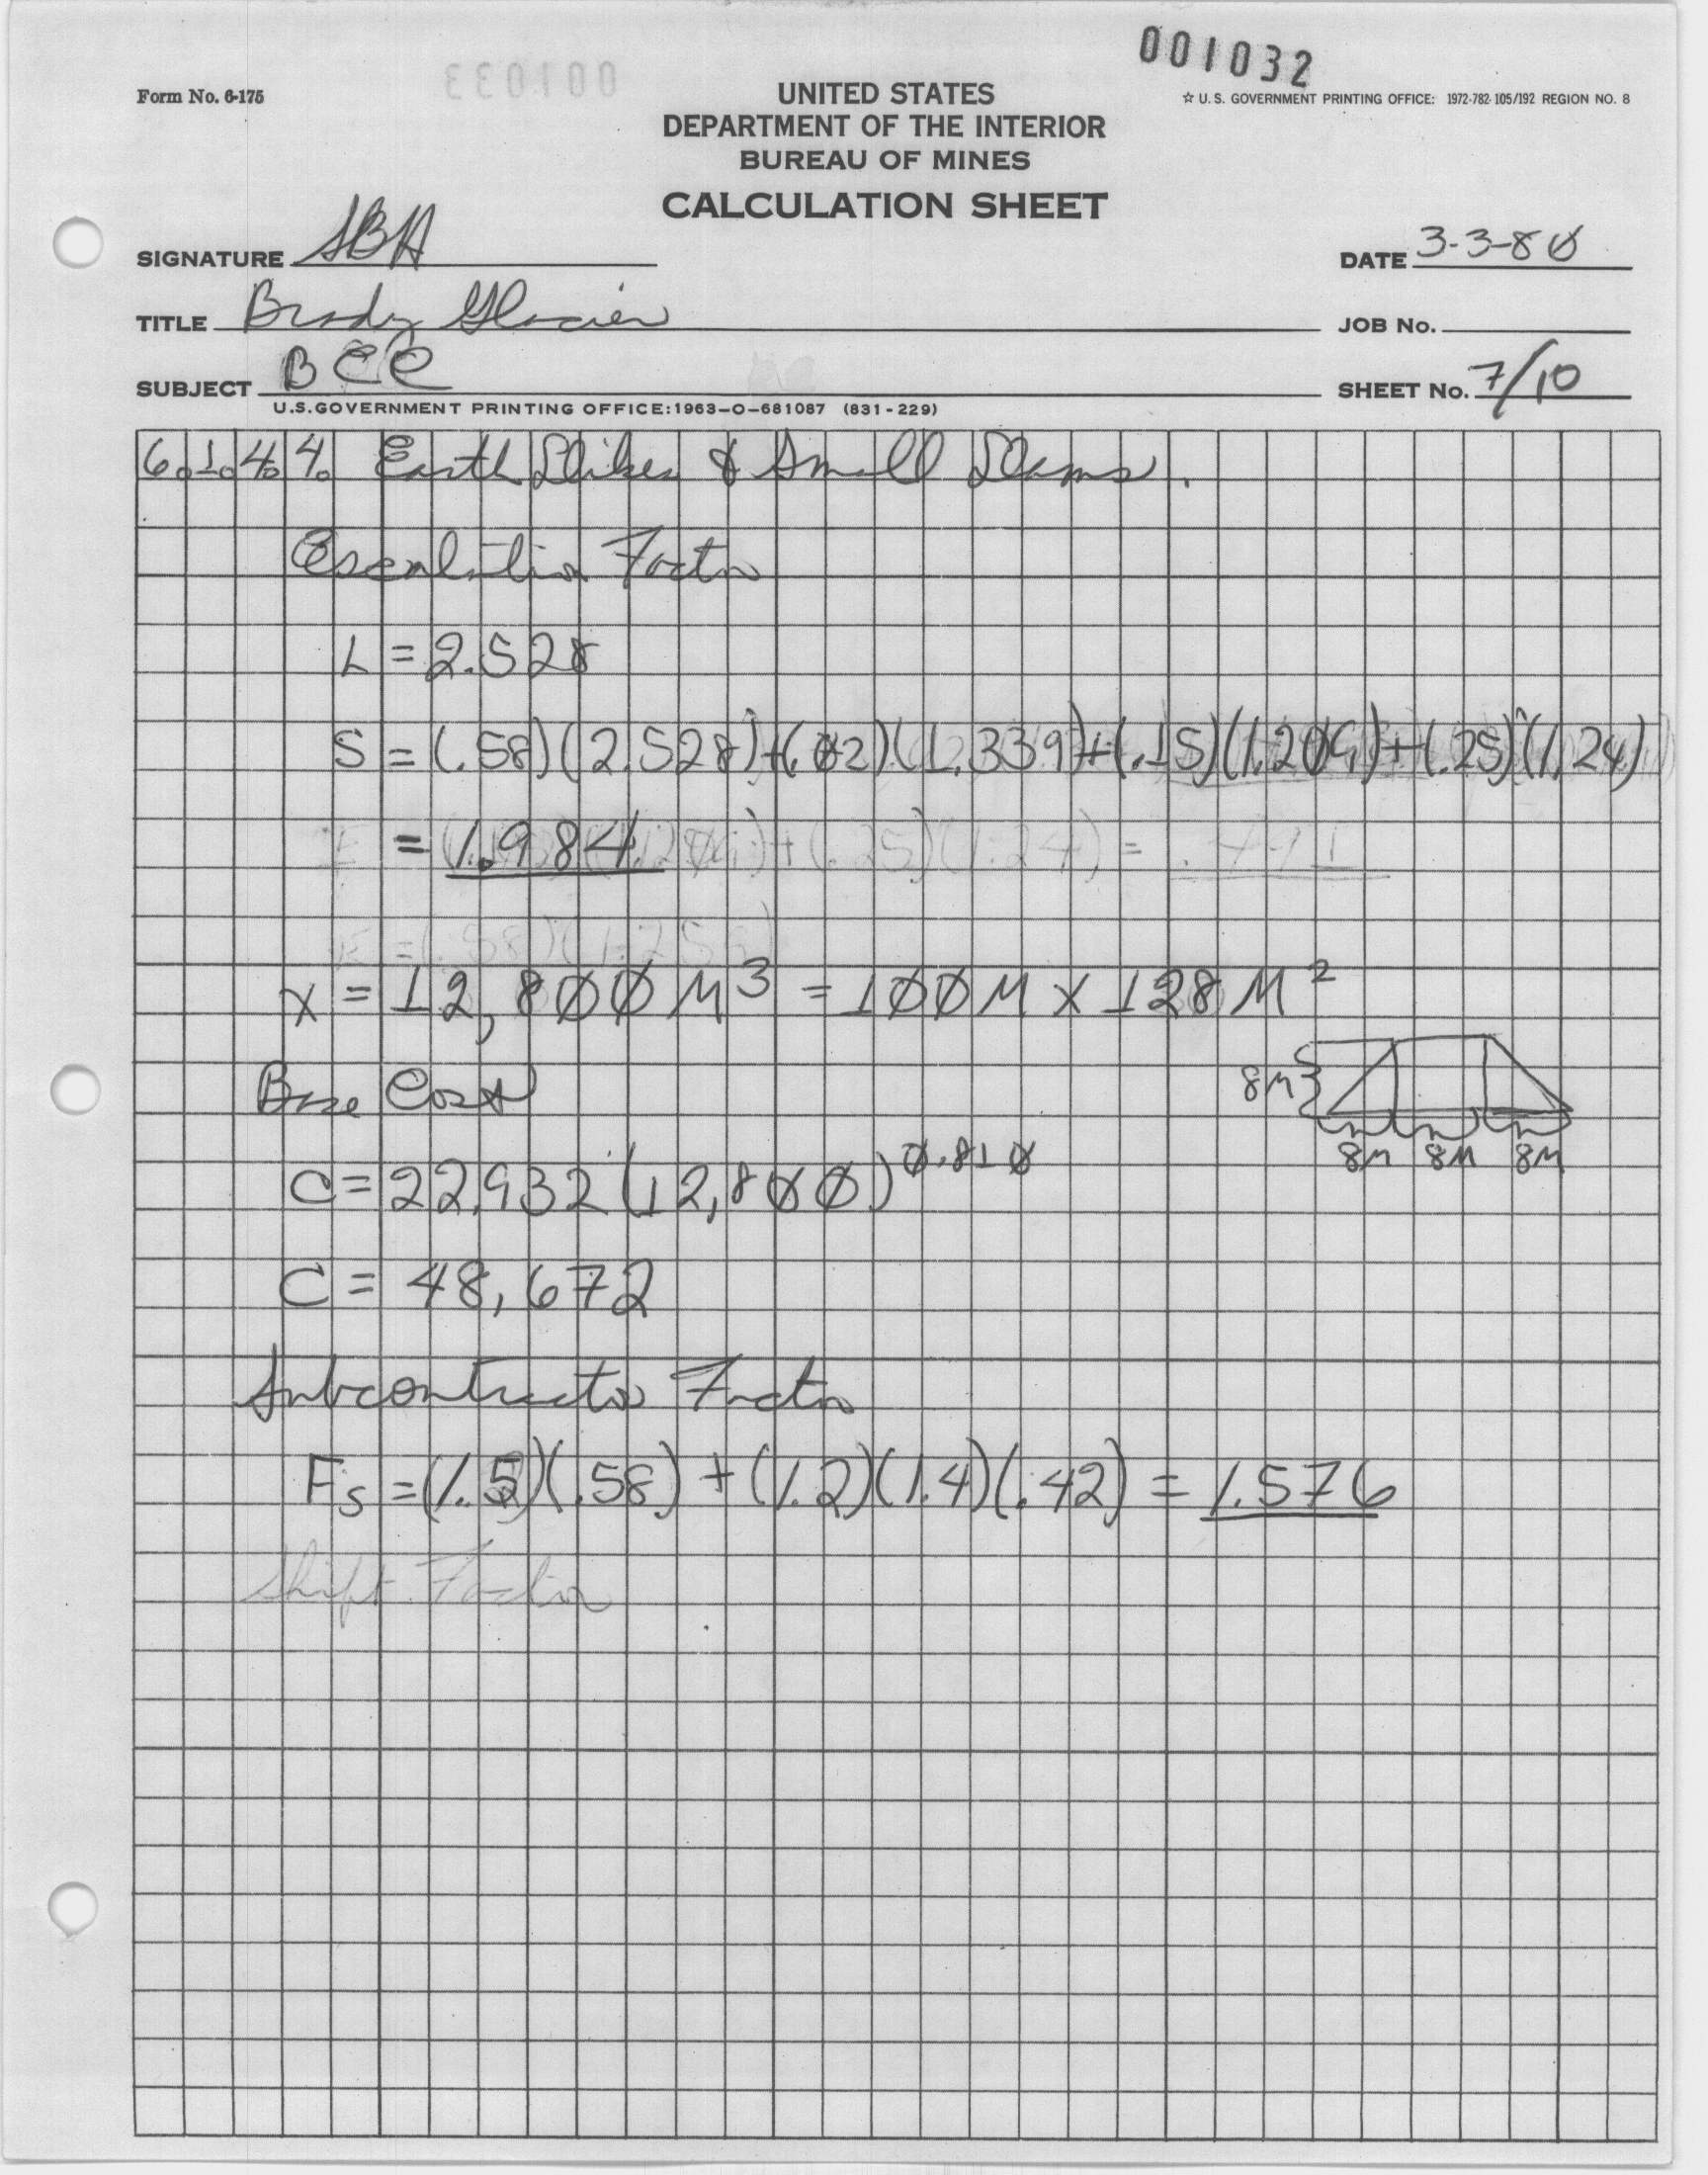 001032
001033
Form No. 6-175
UNITED STATES
☆ U.S. GOVERNMENT PRINTING OFFICE: 1972-782-105/192 REGION NO. 8
DEPARTMENT OF THE INTERIOR
BUREAU OF MINES
CALCULATION SHEET
SIGNATURE SBH DATE 3-3-80
TITLE Brady Glacier JOB No.
SUBJECT BCC SHEET No. 7/10
U.S.GOVERNMENT PRINTING OFFICE:1963-O-681087 (831-229)
6.1.4.4. Earth Dikes & Small Dams.
Escalation Factor
L = 2.528
S = (.58)(2.528)+(.02)(1.339)+(.15)(1.209)+(.25)(1.24)
= 1.984
X = 12,800 M³ = 100M x 128 M²
Base Cost
8M
8M 8M 8M
C = 22.932 (12,800)^0.810
C = 48,672
Subcontractor Factor
Fs = (1.5)(.58) + (1.2)(1.4)(.42) = 1.576
Shift Factor